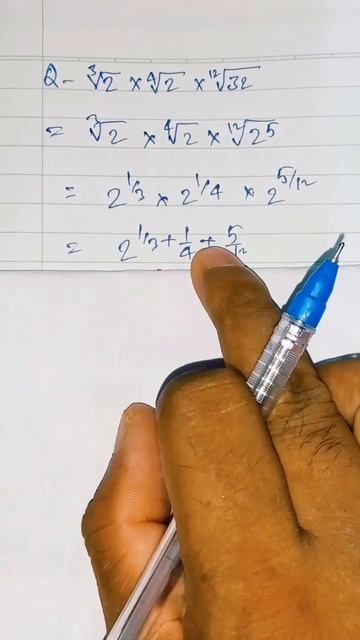 Q- ∛2 × ∜2 × ¹²√32
= ∛2 × ∜2 × ¹²√2⁵
= 2^1/3 × 2^1/4 × 2^5/12
= 2^1/3 + 1/4 + 5/12